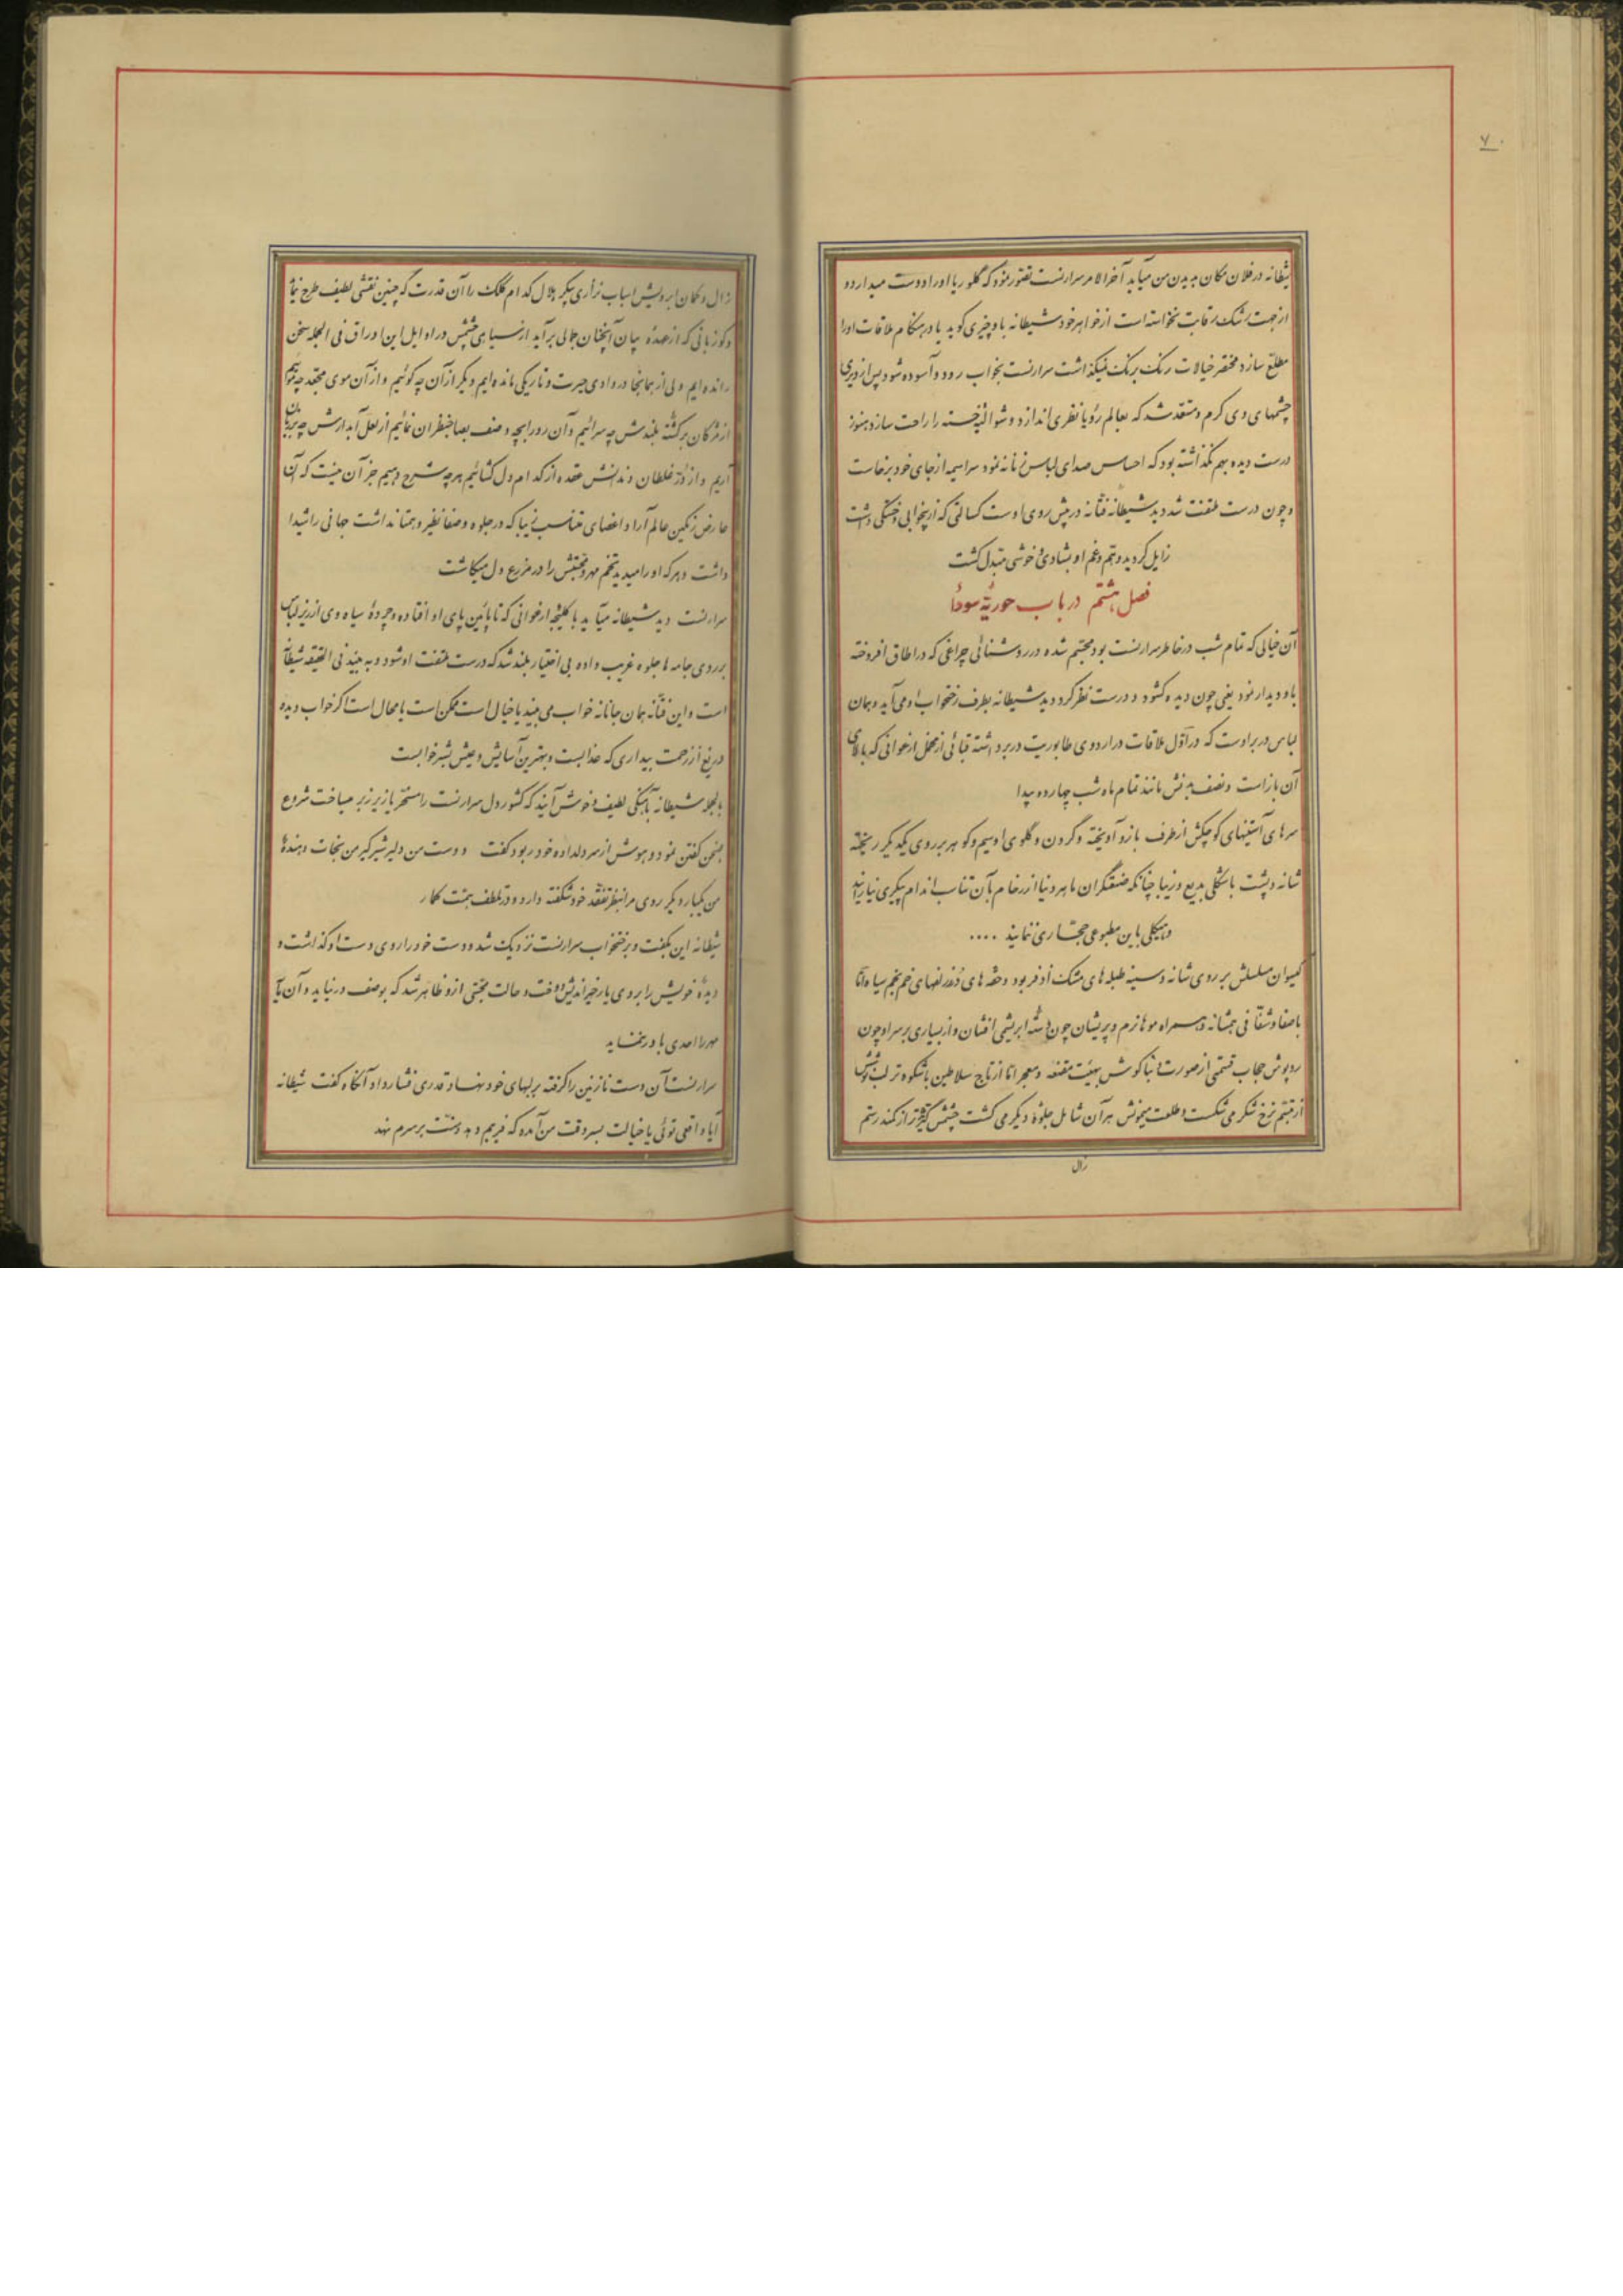 ۷۰
شیطانه در فلان مکان بدیدن من میآید آخرالامر سرارنست تصور نمود که گلوریا اورا دوست میدارد و
از جهت رشک رقابت نخواسته است از خواهر خود شیطانه باو چیزی گوید یا در هنگام ملاقات اورا
مطلع سازد مختصر خیالات رنک برنک نمیگذاشت سرارنست بخواب رود و آسوده شود پس از دیری
چشمهای وی گرم و مستعد شد که بعالم رؤیا نظری اندازد و شوالیه خسته را راحت سازد هنوز
درست دیده بهم نگذاشته بود که احساس صدای لباس زنانه نمود سراسیمه از جای خود برخاست
و چون درست ملتفت شد دید شیطانه فتانه در پیش روی اوست کسالتی که از بیخوابی و خستگی داشت
زایل گردید و هم و غم او بشادی و خوشی مبدل گشت
فصل هشتم در باب حوریهٔ سودا
آن خیالی که تمام شب در خاطر سرارنست بود مجسم شده در روشنائی چراغی که در اطاق افروخته
باو دیدار نمود یعنی چون دیده گشود و درست نظر کرد دید شیطانه بطرف رختخواب او می آید و همان
لباس در بر اوست که در اول ملاقات در اردوی طابوریت در بر داشته قبائی از مخمل ارغوانی که بالای
آن باز است و نصف بدنش مانند تمام ماه شب چهارده پیدا
سرهای آستینهای کوچکش از طرف بازو آویخته و گردن و گلوی او سیم و گوهر بر روی یکدیگر ریخته
شانه و پشت باشکلی بدیع و زیبا چنانکه صنعتگران ماهر دنیا از رخام بآن تناسب اندام پیکری نیارایند
و هیکلی باین مطبوعی حجاری ننمایند ....
گیسوان مسلسلش بر روی شانه و سینه طبله های مشک اذفر بود و حقه های زلفهای خم بخم سیاه اما
با صفا و شفافی همشانه و همراه موها نرم و پریشان چون رشته ابریشمی افشان و از بسیاری بر سر او چون
روپوش حجاب قسمتی از صورت و بناگوش بهیئت مقنعه و معجر اما از تاج سلاطین باشکوه تر لب نوشش
از تبسم نرخ شکر می شکست و طلعت میمونش هر آن شامل جلوهٔ دیگر می گشت چشمش گیراتر از کمند رستم
زال
زال و کمان ابرویش اسباب نزاری پیکر هلال کدام کلک را آن قدرت که چنین نقشی لطیف طرح نماید
و کو زبانی که از عهدهٔ بیان آنچنان جمالی برآید از سیاهی چشمش در اوایل این اوراق فی الجمله سخن
رانده ایم ولی از همانجا در وادی حیرت و تاریکی مانده ایم دیگر از آن چه گوئیم و از آن موی مجعد چه
از مژگان برگشته بلندش چه سرائیم و آن رو را بچه وصف بصاحبنظران نمائیم از لعل آبدارش چه بزبان
آریم و از در غلطان دندانش عقده از کدام دل گشائیم هر چه شرح دهیم جز آن نیست که آن
عارض رنگین عالم آرا و اعضای متناسب زیبا که در جلوه و صفا نظیر و همتا نداشت جهانی را شیدا
داشت و هر که او را میدید تخم مهر و محبتش را در مزرع دل میکاشت
سرارنست دید شیطانه میآید با کلیجهٔ ارغوانی که تا پائین پای او افتاده و چردهٔ سیاه وی از زیر لباس
بر روی جامه ها جلوه غریب داده بی اختیار بلند شد که درست ملتفت او شود و به بیند فی الحقیقه شیطانه
است و این فتانه همان جانانه خواب می بیند یا خیال است ممکن است یا محال است اگر خواب دیده
دریغ از زحمت بیداری که عذابست و بهترین آسایش و عیش بشر خوابست
بالجمله شیطانه بآهنگی لطیف و خوش آیند که کشور دل سرارنست را مسخر یا زیر زبر میساخت شروع
بسخن گفتن نمود و هوش از سر دلداده خود ربود گفت دوست من دلیر شیرگیر من نجات دهندهٔ
من یکبار دیگر روی مرا بنظر تفقد خود شکفته دار و در تلطف همت گمار
شیطانه این بگفت و برختخواب سرارنست نزدیک شد و دست خود را روی دست او گذاشت و
دیدهٔ خویش را بروی یار خیراندیش دوخت و حالت محبتی ازو ظاهر شد که بوصف در نیاید و آن
مهر را احدی باور ننماید
سرارنست آن دست نازنین را گرفته بر لبهای خود نهاد و قدری فشار داد آنگاه گفت شیطانه
آیا واقعی توئی یا خیالت بسر وقت من آمده که فریبم دهد و منت بر سرم نهد